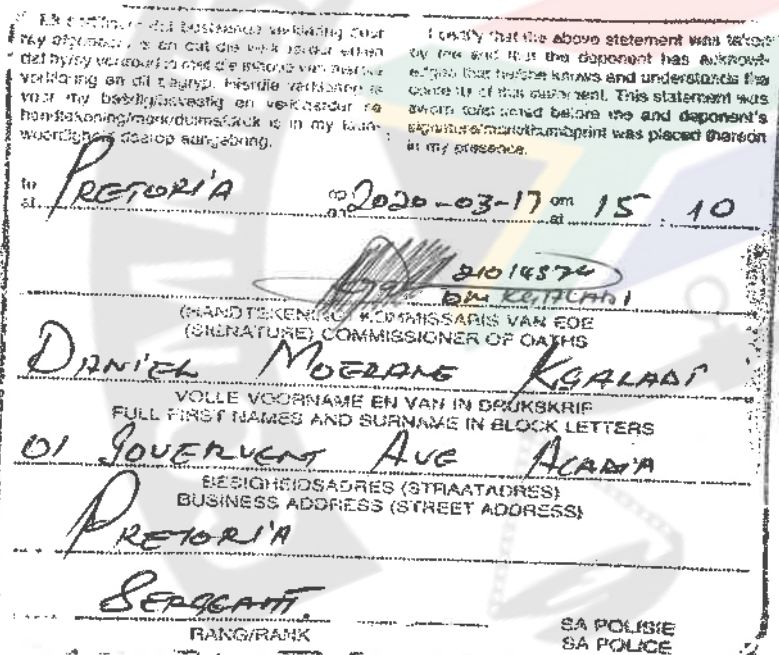 Ek sertifiseer dat bostaande verklaring deur
my afgeneem is en dat die verklaarder erken
dat hy/sy vertroud is met die inhoud van hierdie
verklaring en dit begryp. Hierdie verklaring is
voor my beëdig/bevestig en verklaarder se
handtekening/merk/duimafdruk is in my teen-
woordigheid daarop aangebring.
I certify that the above statement was taken
by me and that the deponent has acknowl-
edged that he/she knows and understands the
contents of this statement. This statement was
sworn to/affirmed before me and deponent's
signature/mark/thumbprint was placed thereon
in my presence.
te at PRETORIA op on 2020-03-17 om at 15 10
DM KGALADI
(HANDTEKENING) KOMMISSARIS VAN EDE
(SIGNATURE) COMMISSIONER OF OATHS
DANIEL MOERANE KGALADI
VOLLE VOORNAME EN VAN IN DRUKSKRIF
FULL FIRST NAMES AND SURNAME IN BLOCK LETTERS
01 AVE
BESIGHEIDSADRES (STRAATADRES)
BUSINESS ADDRESS (STREET ADDRESS)
PRETORIA
SERGEANT
RANG/RANK
SA POLISIE
SA POLICE